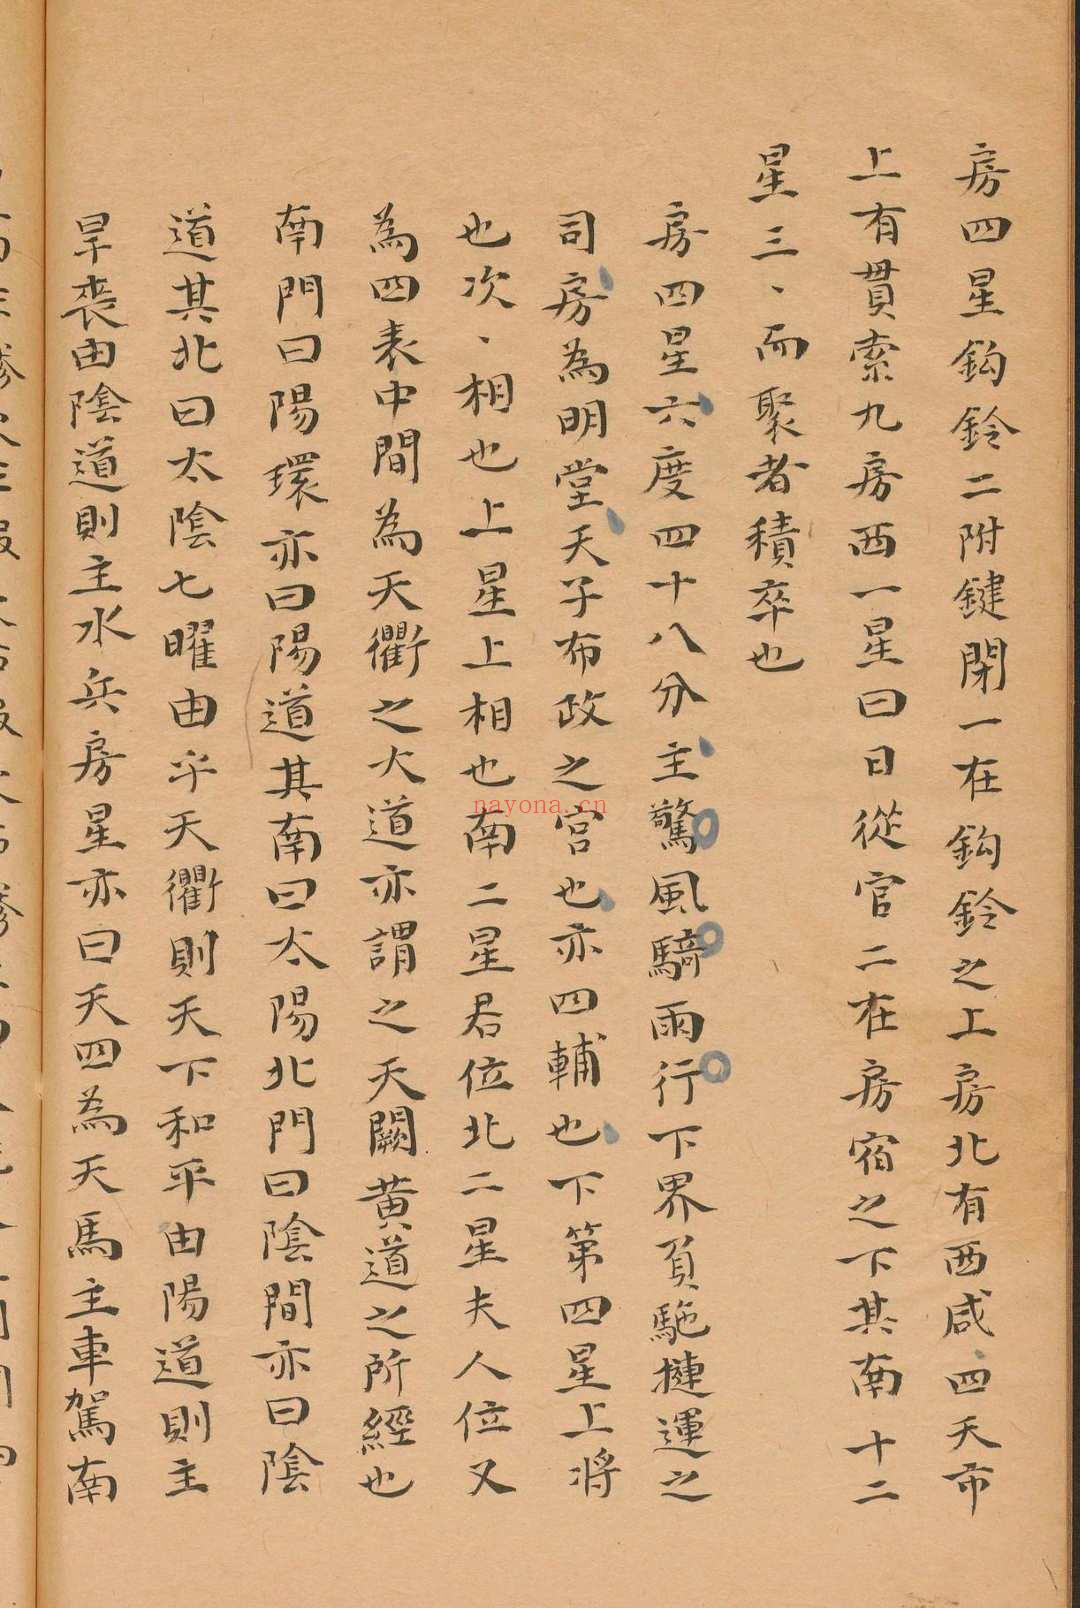 房四星鈎鈴二附鍵閉一在鈎鈴之上房北有西咸四天市
上有貫索九房西一星曰日從官二在房宿之下其南十二
星三、而聚者積卒也
房四星六度四十八分主驚風騎雨行下界負駞摙運之
司房為明堂天子布政之宮也亦四輔也下第四星上將
也次、相也上星上相也南二星君位北二星夫人位又
為四表中間為天衢之大道亦謂之天闕黄道之所經也
南門曰陽環亦曰陽道其南曰太陽北門曰陰間亦曰陰
道其北曰太陰七曜由乎天衢則天下和平由陽道則主
旱喪由陰道則主水兵房星亦曰天四為天馬主車駕南
nayona.cn